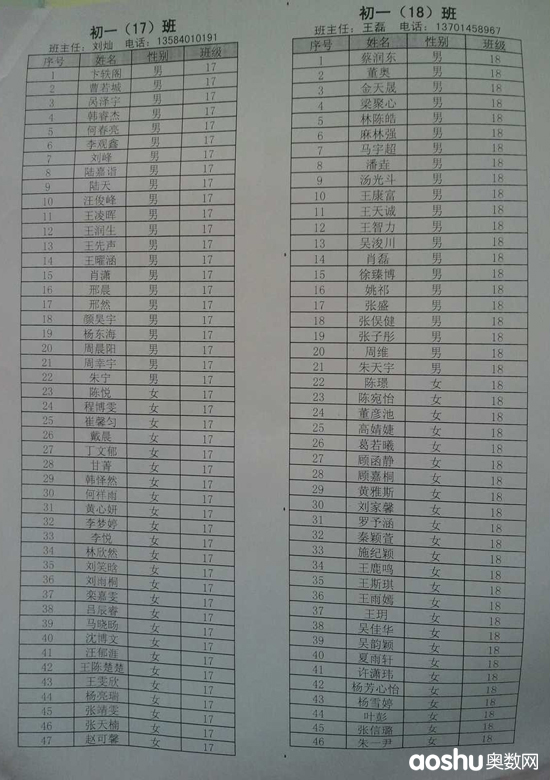 初一（17）班
班主任：刘灿 电话：13584010191
序号 姓名 性别 班级
1 卞轶阁 男 17
2 曹若城 男 17
3 吴泽宇 男 17
4 韩睿杰 男 17
5 何春亮 男 17
6 李观鑫 男 17
7 刘峰 男 17
8 陆嘉诣 男 17
9 陆天 男 17
10 汪俊峰 男 17
11 王凌晖 男 17
12 王润生 男 17
13 王先声 男 17
14 王曜涵 男 17
15 肖潇 男 17
16 邢晨 男 17
17 邢然 男 17
18 颜昊宇 男 17
19 杨东海 男 17
20 周晨阳 男 17
21 周幸宇 男 17
22 朱宁 男 17
23 陈悦 女 17
24 程博雯 女 17
25 崔馨匀 女 17
26 戴晨 女 17
27 丁文郁 女 17
28 甘菁 女 17
29 韩怿然 女 17
30 何祥雨 女 17
31 黄心妍 女 17
32 李梦婷 女 17
33 李悦 女 17
34 林欣然 女 17
35 刘笑晗 女 17
36 刘雨桐 女 17
37 栾嘉雯 女 17
38 吕辰睿 女 17
39 马晓旸 女 17
40 沈博文 女 17
41 汪郁涯 女 17
42 王陈楚楚 女 17
43 王雯欣 女 17
44 杨亮瑞 女 17
45 张靖雯 女 17
46 张天楠 女 17
47 赵可馨 女 17
初一（18）班
班主任：王磊 电话：13701458967
序号 姓名 性别 班级
1 蔡润东 男 18
2 董奥 男 18
3 金天晟 男 18
4 梁聚心 男 18
5 林陈皓 男 18
6 麻林强 男 18
7 马宇超 男 18
8 潘垚 男 18
9 汤光斗 男 18
10 王康富 男 18
11 王天诚 男 18
12 王智力 男 18
13 吴浚川 男 18
14 肖磊 男 18
15 徐臻博 男 18
16 姚祁 男 18
17 张盛 男 18
18 张俣健 男 18
19 张子彤 男 18
20 周维 男 18
21 朱天宇 男 18
22 陈璟 女 18
23 陈宛怡 女 18
24 董彦池 女 18
25 高婧婕 女 18
26 葛若曦 女 18
27 顾函静 女 18
28 顾嘉桐 女 18
29 黄雅斯 女 18
30 刘家馨 女 18
31 罗予涵 女 18
32 秦颖萱 女 18
33 施纪颖 女 18
34 王鹿鸣 女 18
35 王斯琪 女 18
36 王雨嫣 女 18
37 王玥 女 18
38 吴佳华 女 18
39 吴韵颖 女 18
40 夏雨轩 女 18
41 许潇玮 女 18
42 杨芳心怡 女 18
43 杨雪婷 女 18
44 叶彭 女 18
45 张信璐 女 18
46 朱一尹 女 18
aoshu奥数网